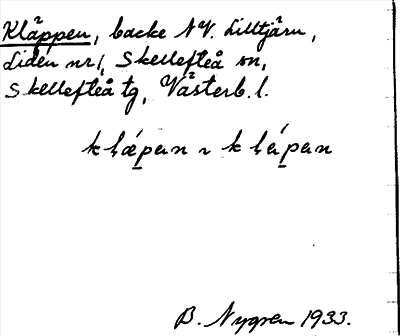 Kläppen, backe NV. Lilltjärn,
Lidén nr 1, Skellefteå sn,
Skellefteå tg, Västerb. l.
kḷæ̀pan ~ kḷápan
B. Nygren 1933.